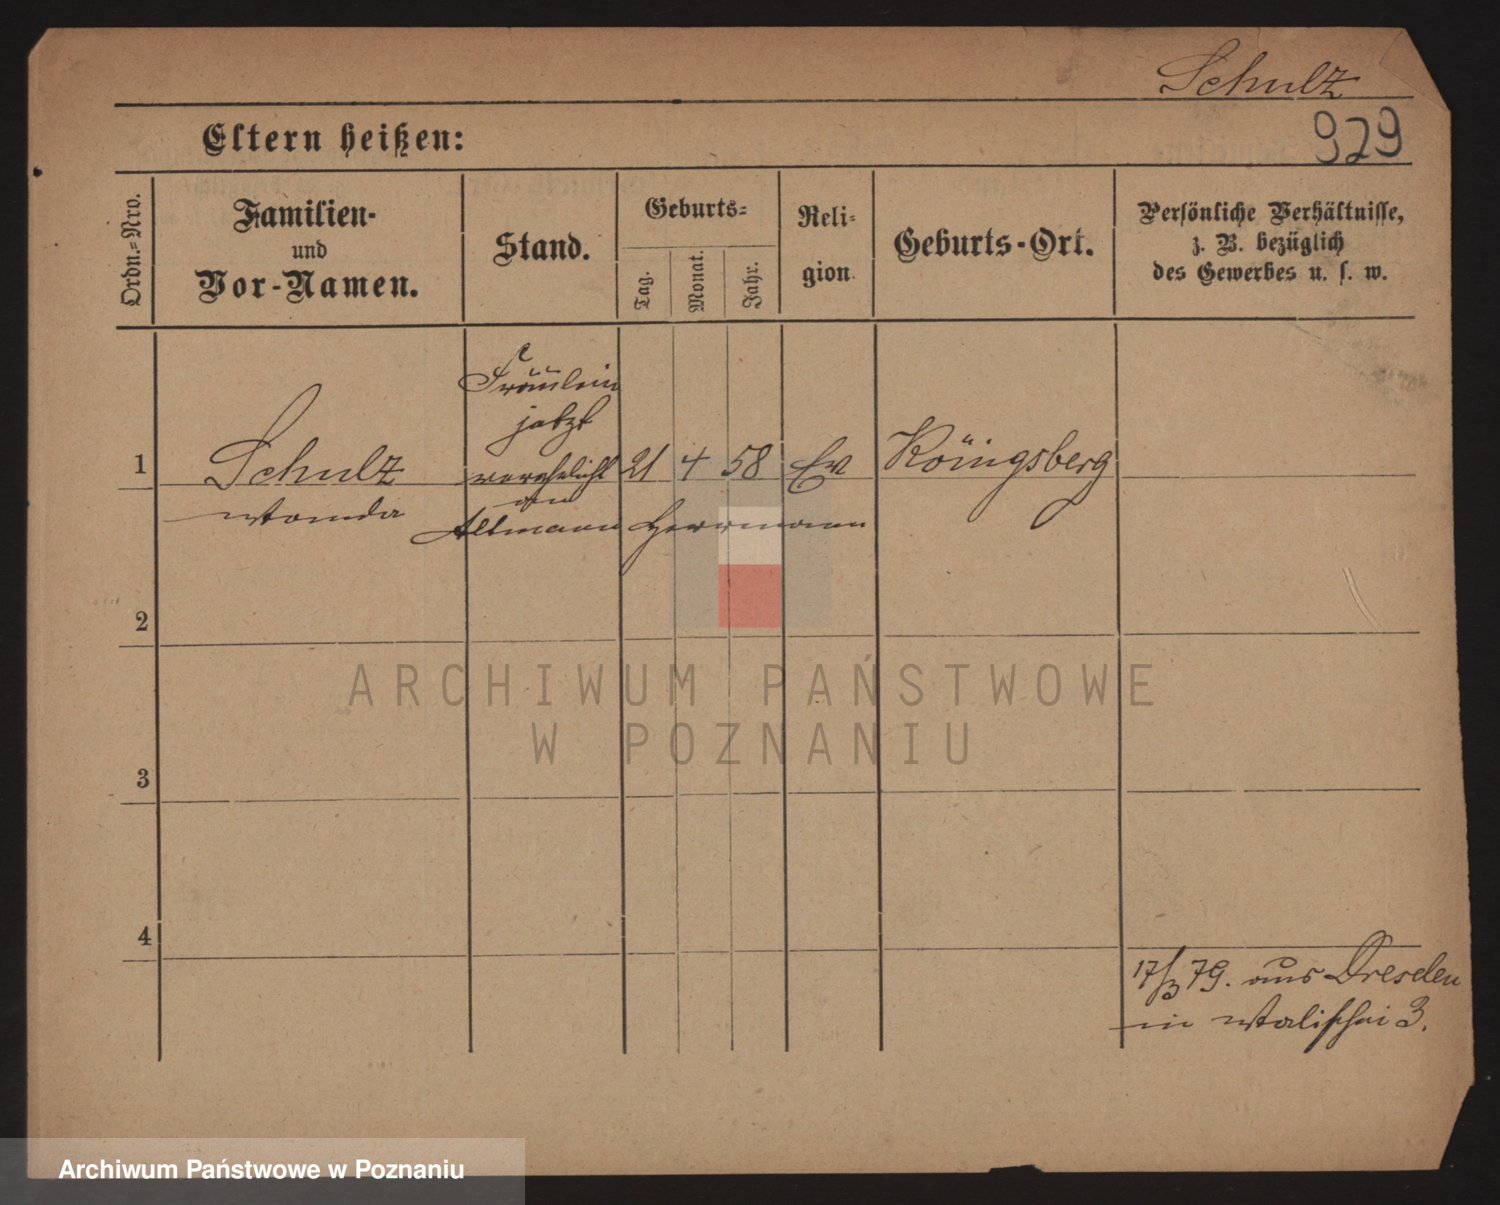 Schulz
Eltern heißen:
929
Ordn.-Nro.
Familien-
und
Vor-Namen.
Stand.
Geburts-
Tag.
Monat.
Jahr.
Reli-
gion
Geburts-Ort.
Persönliche Verhältnisse,
z. B. bezüglich
des Gewerbes u. s. w.
Fräulein
jetzt
1 Schulz verehelicht 21 4 58 Ev Königsberg
Wanda an
Altmann Herrmann
2
ARCHIWUM PAŃSTWOWE
W POZNANIU
3
4
17/3 79. aus Dresden
in Wallischei 3.
Archiwum Państwowe w Poznaniu